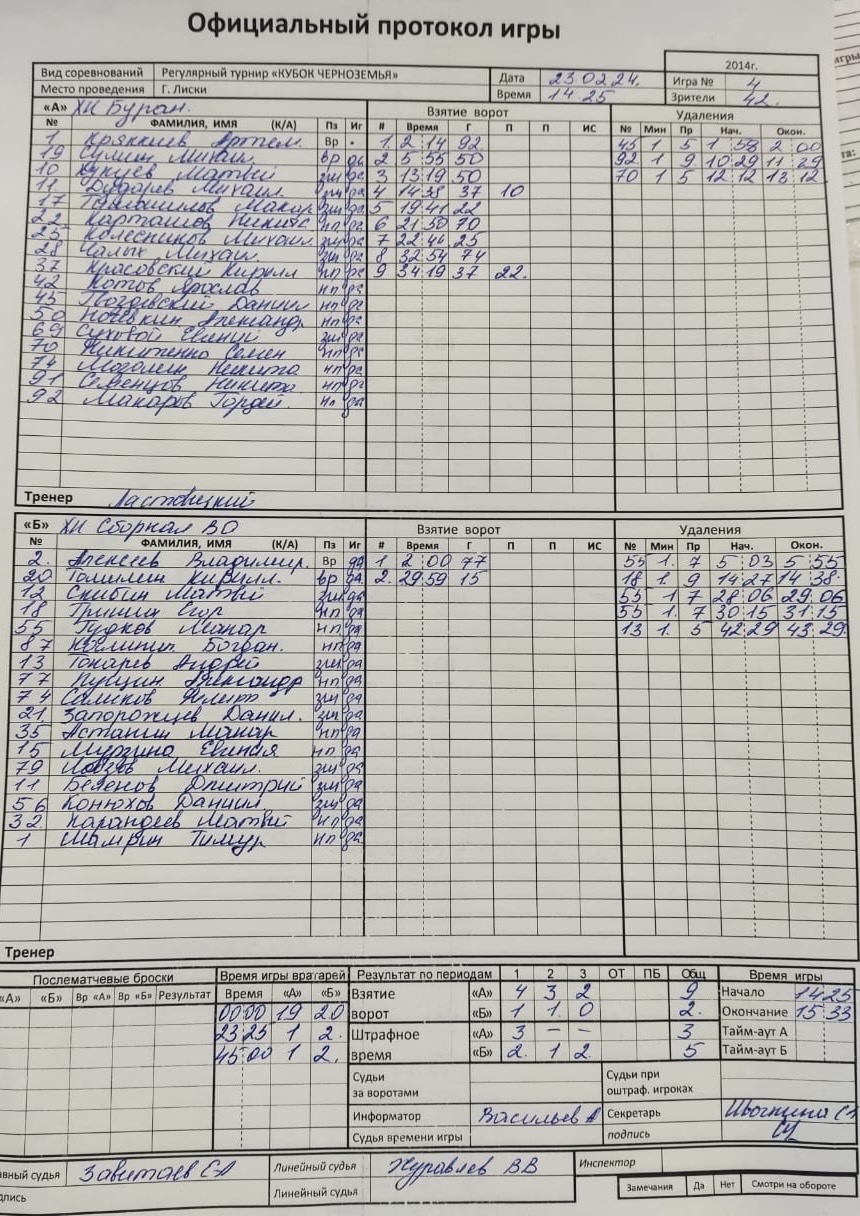 Официальный протокол игры
2014г.
Вид соревнований Регулярный турнир «КУБОК ЧЕРНОЗЕМЬЯ» Дата 23 02 24. Игра № 4
Место проведения Г. Лиски Время 14.25 Зрители 42.
«А» ХК Буран. Взятие ворот Удаления
№ ФАМИЛИЯ, ИМЯ (К/А) Пз Иг # Время Г П П ИС № Мин Пр Нач. Окон.
1 Артем. Вр 1. 2 14 92 45 1 5 1 58 2 00
19 Сулим Михаил вр да 2 5 55 50 92 1 9 10 29 11 29
10 Кукуев Матвей зщ да 3 13 19 50 70 1 5 12 12 13 12
11 Дударев Михаил. да 4 14 38 37 10
17 Макар зщ да 5 19 41 22
22 Карташов Никита нп да 6 21 50 70
25 Колесников Михаил зщ да 7 22 46 25
28 Чалых Михаил зщ да 8 32 54 74
37 Красовский Кирилл нп да 9 34 19 37 22.
42 Котов Ярослав нп да
45 Гвоздевский Даниил нп да
50 Александр нп да
69 Суховой Евгений зщ да
70 Никитенко Семен нп да
74 Никита нп да
91 Семенцов Никита нп да
92 Макаров Гордей. нп да
Тренер Ластовецкий
«Б» ХК Сборная ВО Взятие ворот Удаления
№ ФАМИЛИЯ, ИМЯ (К/А) Пз Иг # Время Г П П ИС № Мин Пр Нач. Окон.
2. Алексеев Владимир. Вр да 1 2 00 77 55 1. 7 5 03 5 55
20 Томилин Кирилл. вр да 2. 29 59 15 18 1. 9 14 27 14 38.
12 Матвей зщ да 55 1 7 28 06 29 06
18 Гришин Егор нп да 55 1. 7 30 15 31 15
55 Гудков Макар нп да 13 1. 5 42 29 43 29.
87 Богдан. нп да
13 Токарев Андрей зщ да
77 Пущин Александр нп да
74 Саликов зщ да
21. Запорожцев Данил. зщ да
35 Астанин Макар нп да
15 Мурзина Евгения нп да
79 Михаил. зщ да
11 Беленов Дмитрий зщ да
56 Конюхов Даниил зщ да
32 Карандеев Матвей нп да
1 Шамрин Тимур нп да
Тренер
Послематчевые броски Время игры вратарей Результат по периодам 1 2 3 ОТ ПБ Общ Время игры
«А» «Б» Вр «А» Вр «Б» Результат Время «А» «Б» Взятие «А» 4 3 2 9 Начало 14 25
00 00 19 20 ворот «Б» 1 1. 0 2. Окончание 15 33
23 25 1 2. Штрафное «А» 3 – – 3 Тайм-аут А
45 00 1 2. время «Б» 2. 1 2. 5 Тайм-аут Б
Судьи за воротами Судьи при оштраф. игроках
Информатор Васильев А Секретарь
Судья времени игры подпись
Завитаев СА Линейный судья Журавлев ВВ Инспектор
Линейный судья Замечания Да Нет Смотри на обороте